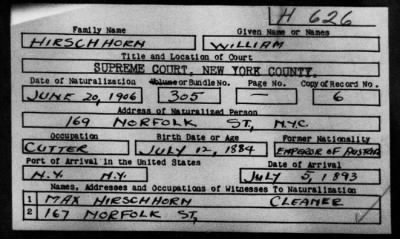 H 626
Family Name Given Name or Names
HIRSCHHORN WILLIAM
Title and Location of Court
SUPREME COURT, NEW YORK COUNTY.
Date of Naturalization Volume or Bundle No. Page No. Copy of Record No.
JUNE 20, 1906 305 — 6
Address of Naturalized Person
169 NORFOLK ST, N.Y.C.
Occupation Birth Date or Age Former Nationality
CUTTER JULY 12, 1884 EMPEROR OF AUSTRIA
Port of Arrival in the United States Date of Arrival
N.Y. N.Y. JULY 5, 1893
Names, Addresses and Occupations of Witnesses To Naturalization
1 MAX HIRSCHHORN CLEANER
2 167 NORFOLK ST,